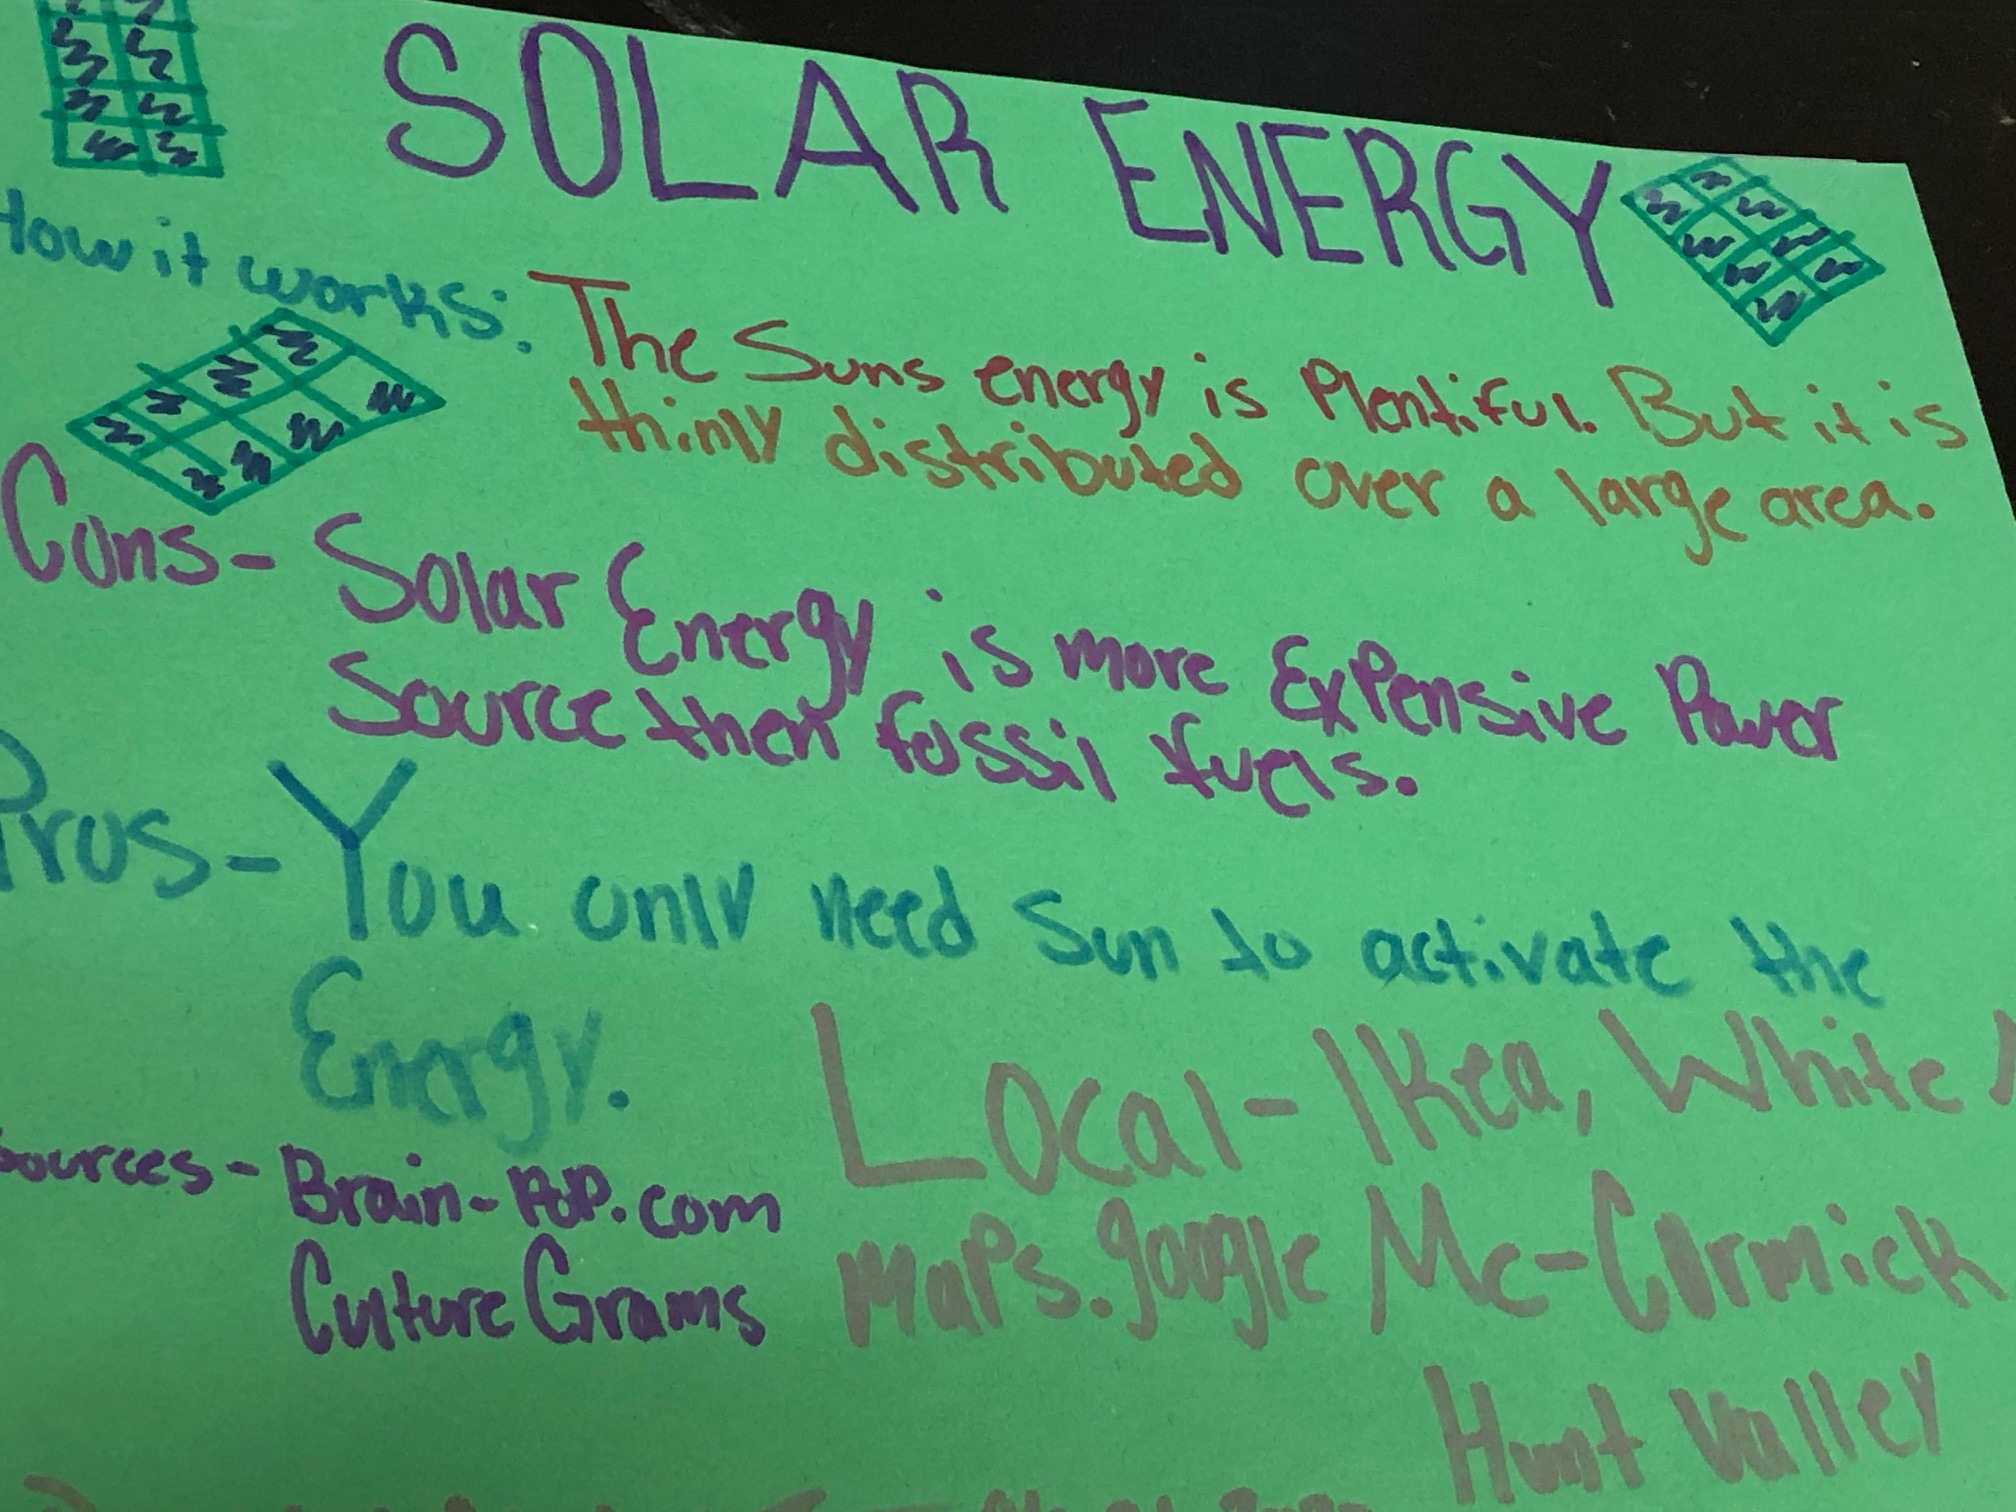 SOLAR ENERGY
How it works: The Suns energy is Plentiful. But it is
thinly distributed over a large area.
Cons- Solar Energy is more Expensive Power
Source then fossil fuels.
Pros- You only need Sun to activate the
Energy.
Local- IKea, White
Sources- Brain-POP.com
maps.google Mc-Cormick
Culture Grams
Hunt Valley